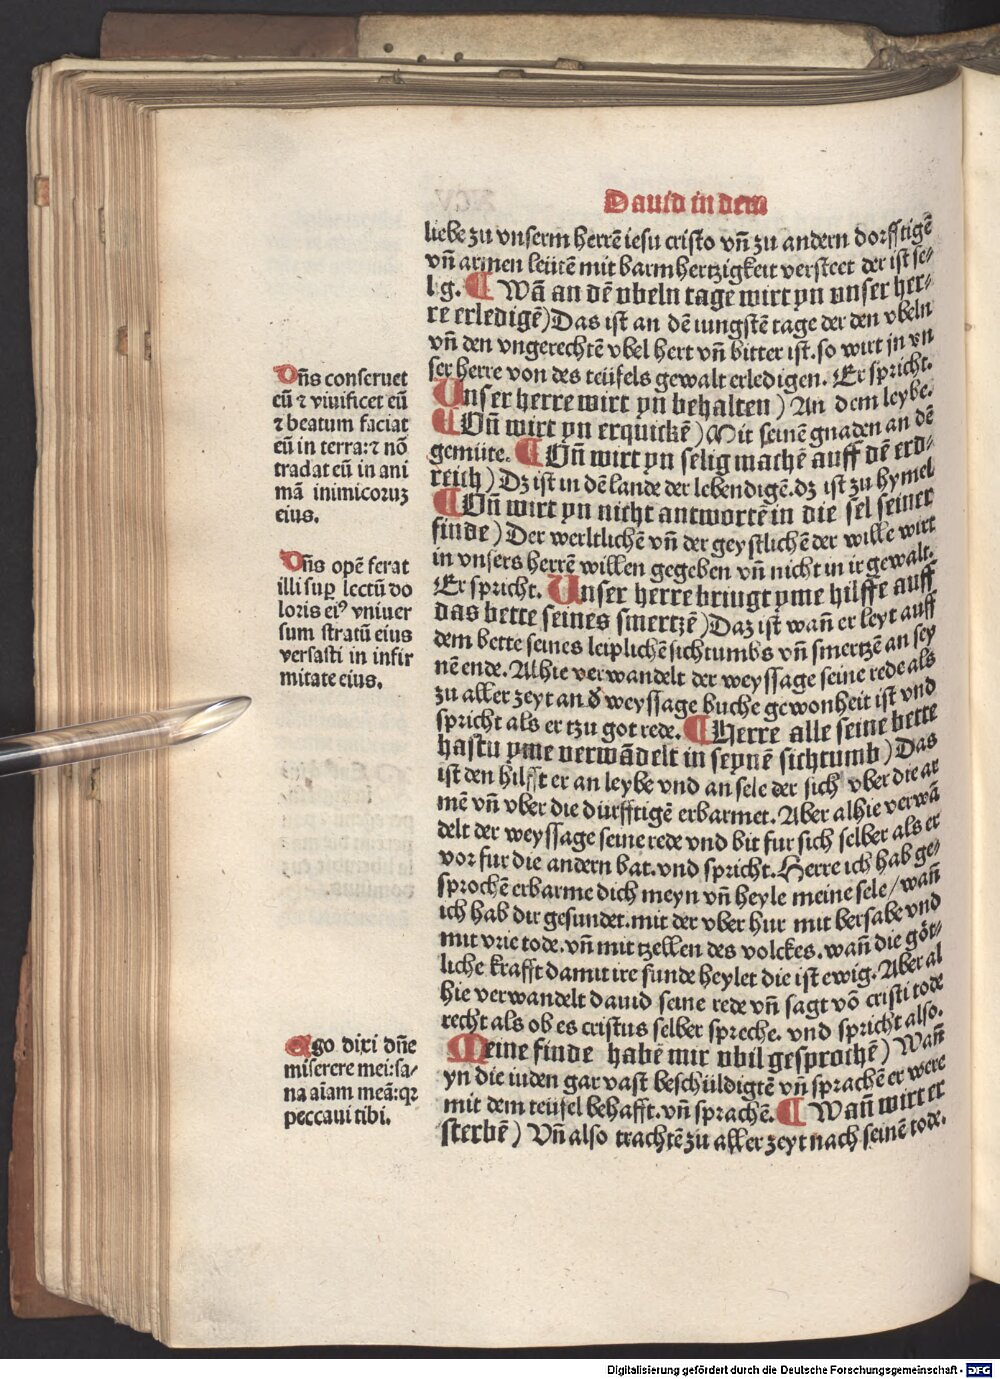 Dauid in dem
liebe zu vnserm herrē iesu cristo vn̄ zu andern dorfftigē
vn̄ armen leütē mit barmhertzigkeit versteet der ist se/
lig. ¶ Wā an dē vbeln tage wirt yn vnser her/
re erledigē) Das ist an dē iungstē tage der den vbeln
vn̄ den vngerechtē vbel hert vn̄ bitter ist. so wirt jn vn
ser herre von des teüfels gewalt erledigen. Er spricht.
Unser herre wirt yn behalten) An dem leybe.
¶ Vn̄ wirt yn erquickē) Mit seinē gnaden an dē
gemüte. ¶ Vn̄ wirt yn selig machē auff dē erd/
reich) Dz ist in dē lande der lebendigē. dz ist zu hymel
¶ Vn̄ wirt yn nicht antwortē in die sel seiner
finde) Der werltlichē vn̄ der geystlichē der wille wirt
in vnsers herrē willen gegeben vn̄ nicht in ir gewalt.
Er spricht. Unser herre bringt yme hilffe auff
das bette seines smertzē) Daz ist wan̄ er leyt auff
dem bette seines leiplichē sichtumbs vn̄ smertzē an sey
nē ende. Alhie verwandelt der weyssage seine rede als
zu aller zeyt an d̓ weyssage buche gewonheit ist vnd
spricht als er tzu got rede. ¶ Herre alle seine bette
hastu yme verwādelt in seynē sichtumb) Das
ist den hilfft er an leybe vnd an sele der sich vber die ar
mē vn̄ vber die dürfftigē erbarmet. Aber alhie verwā
delt der weyssage seine rede vnd bit fur sich selber als er
vor fur die andern bat. vnd spricht. Herre ich hab ge/
sprochē erbarme dich meyn vn̄ heyle meine sele / wan̄
ich hab dir gesundet. mit der vber hur mit bersabe vnd
mit vrie tode. vn̄ mit tzellen des volckes. wan̄ die göt/
liche krafft damit ire sunde heylet die ist ewig. Aber al
hie verwandelt dauid seine rede vn̄ sagt vō cristi tode
recht als ob es cristus selber spreche. vnd spricht also.
Meine finde habē mir vbil gesprochē) Wan̄
yn die iuden gar vast beschüldigtē vn̄ sprachē er were
mit dem teüfel behafft. vn̄ sprachē. ¶ Wan̄ wirt er
sterbē) Vn̄ also trachtē zu aller zeyt nach seinē tode.
Dn̄s conseruet
eū ⁊ viuificet eū
⁊ beatum faciat
eū in terra: ⁊ nō
tradat eū in ani
mā inimicoruꝫ
eius.
Dn̄s opē ferat
illi suꝑ lectū do
loris eiꝰ vniuer
sum stratū eius
versasti in infir
mitate eius.
Ego dixi dn̄e
miserere mei: sa/
na aīam meā: qꝛ
peccaui tibi.
Digitalisierung gefördert durch die Deutsche Forschungsgemeinschaft - DFG